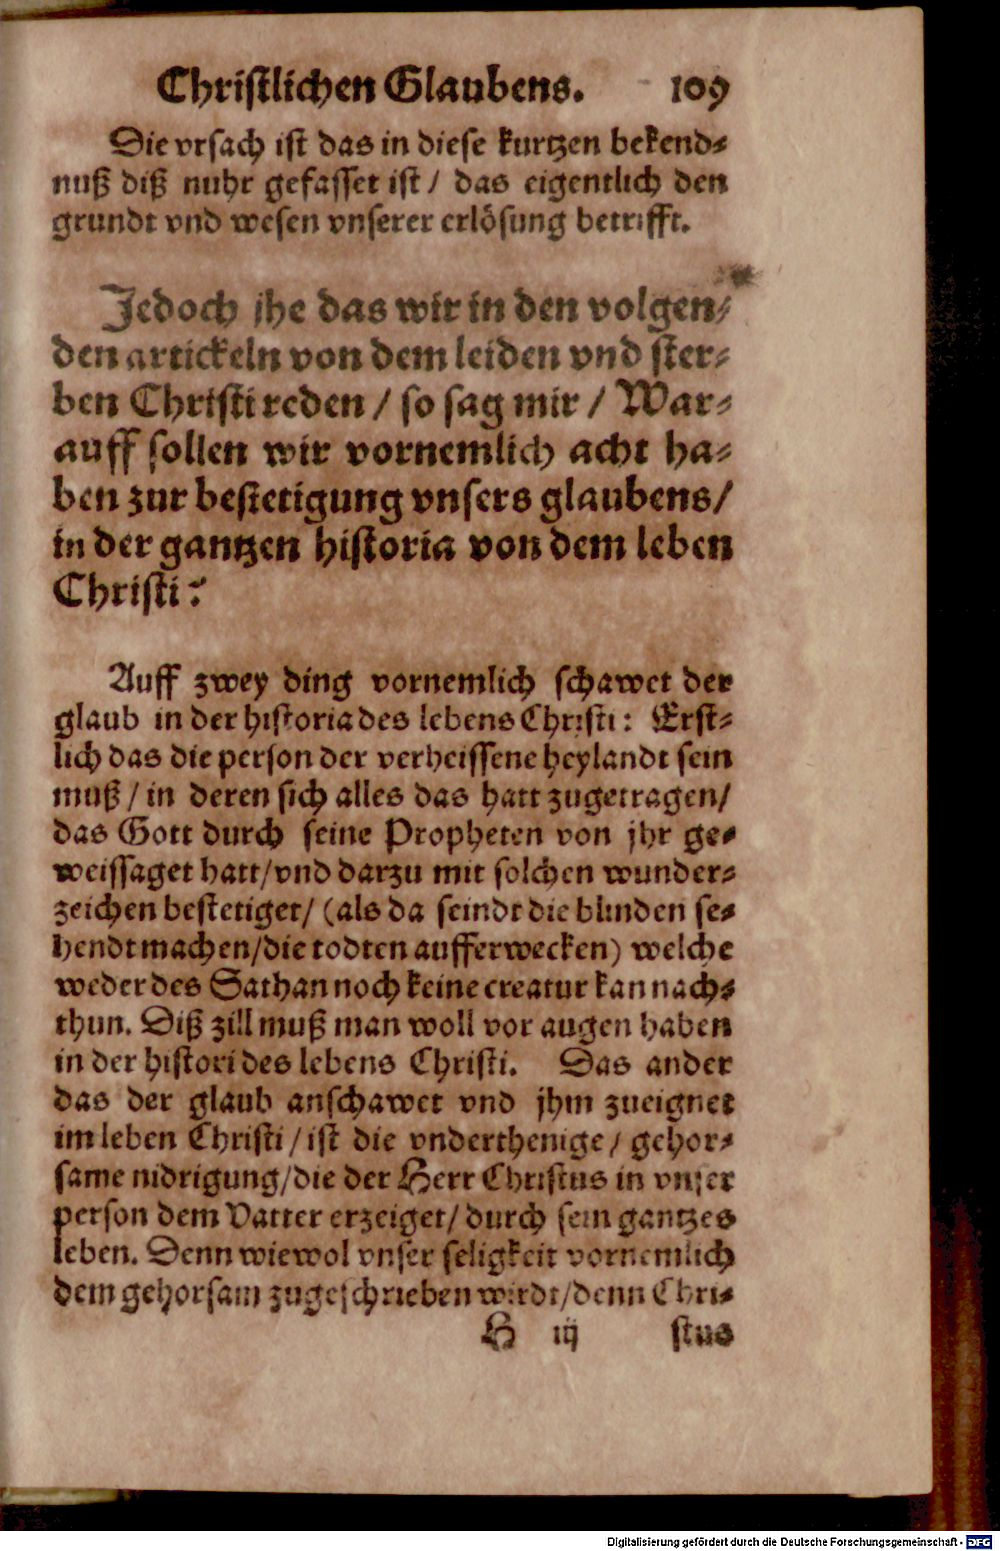 Christlichen Glaubens. 109
Die vrsach ist das in diese kurtzen bekend-
nuß diß nuhr gefasset ist / das eigentlich den
grundt vnd wesen vnserer erlösung betrifft.
Jedoch jhe das wir in den volgen-
den artickeln von dem leiden vnd ster-
ben Christi reden / so sag mir / War-
auff sollen wir vornemlich acht ha-
ben zur bestetigung vnsers glaubens/
in der gantzen historia von dem leben
Christi?
Auff zwey ding vornemlich schawet der
glaub in der historia des lebens Christi: Erst-
lich das die person der verheissene heylandt sein
muß / in deren sich alles das hatt zugetragen/
das Gott durch seine Propheten von jhr ge-
weissaget hatt/vnd darzu mit solchen wunder-
zeichen bestetiget/ (als da seindt die blinden se-
hendt machen/die todten aufferwecken) welche
weder des Sathan noch keine creatur kan nach-
thun. Diß zill muß man woll vor augen haben
in der histori des lebens Christi. Das ander
das der glaub anschawet vnd jhm zueignet
im leben Christi / ist die vnderthenige / gehor-
same nidrigung/die der Herr Christus in vnser
person dem Vatter erzeiget/ durch sein gantzes
leben. Denn wiewol vnser seligkeit vornemlich
dem gehorsam zugeschrieben wirdt/denn Chri-
H iij stus
Digitalisierung gefördert durch die Deutsche Forschungsgemeinschaft - DFG